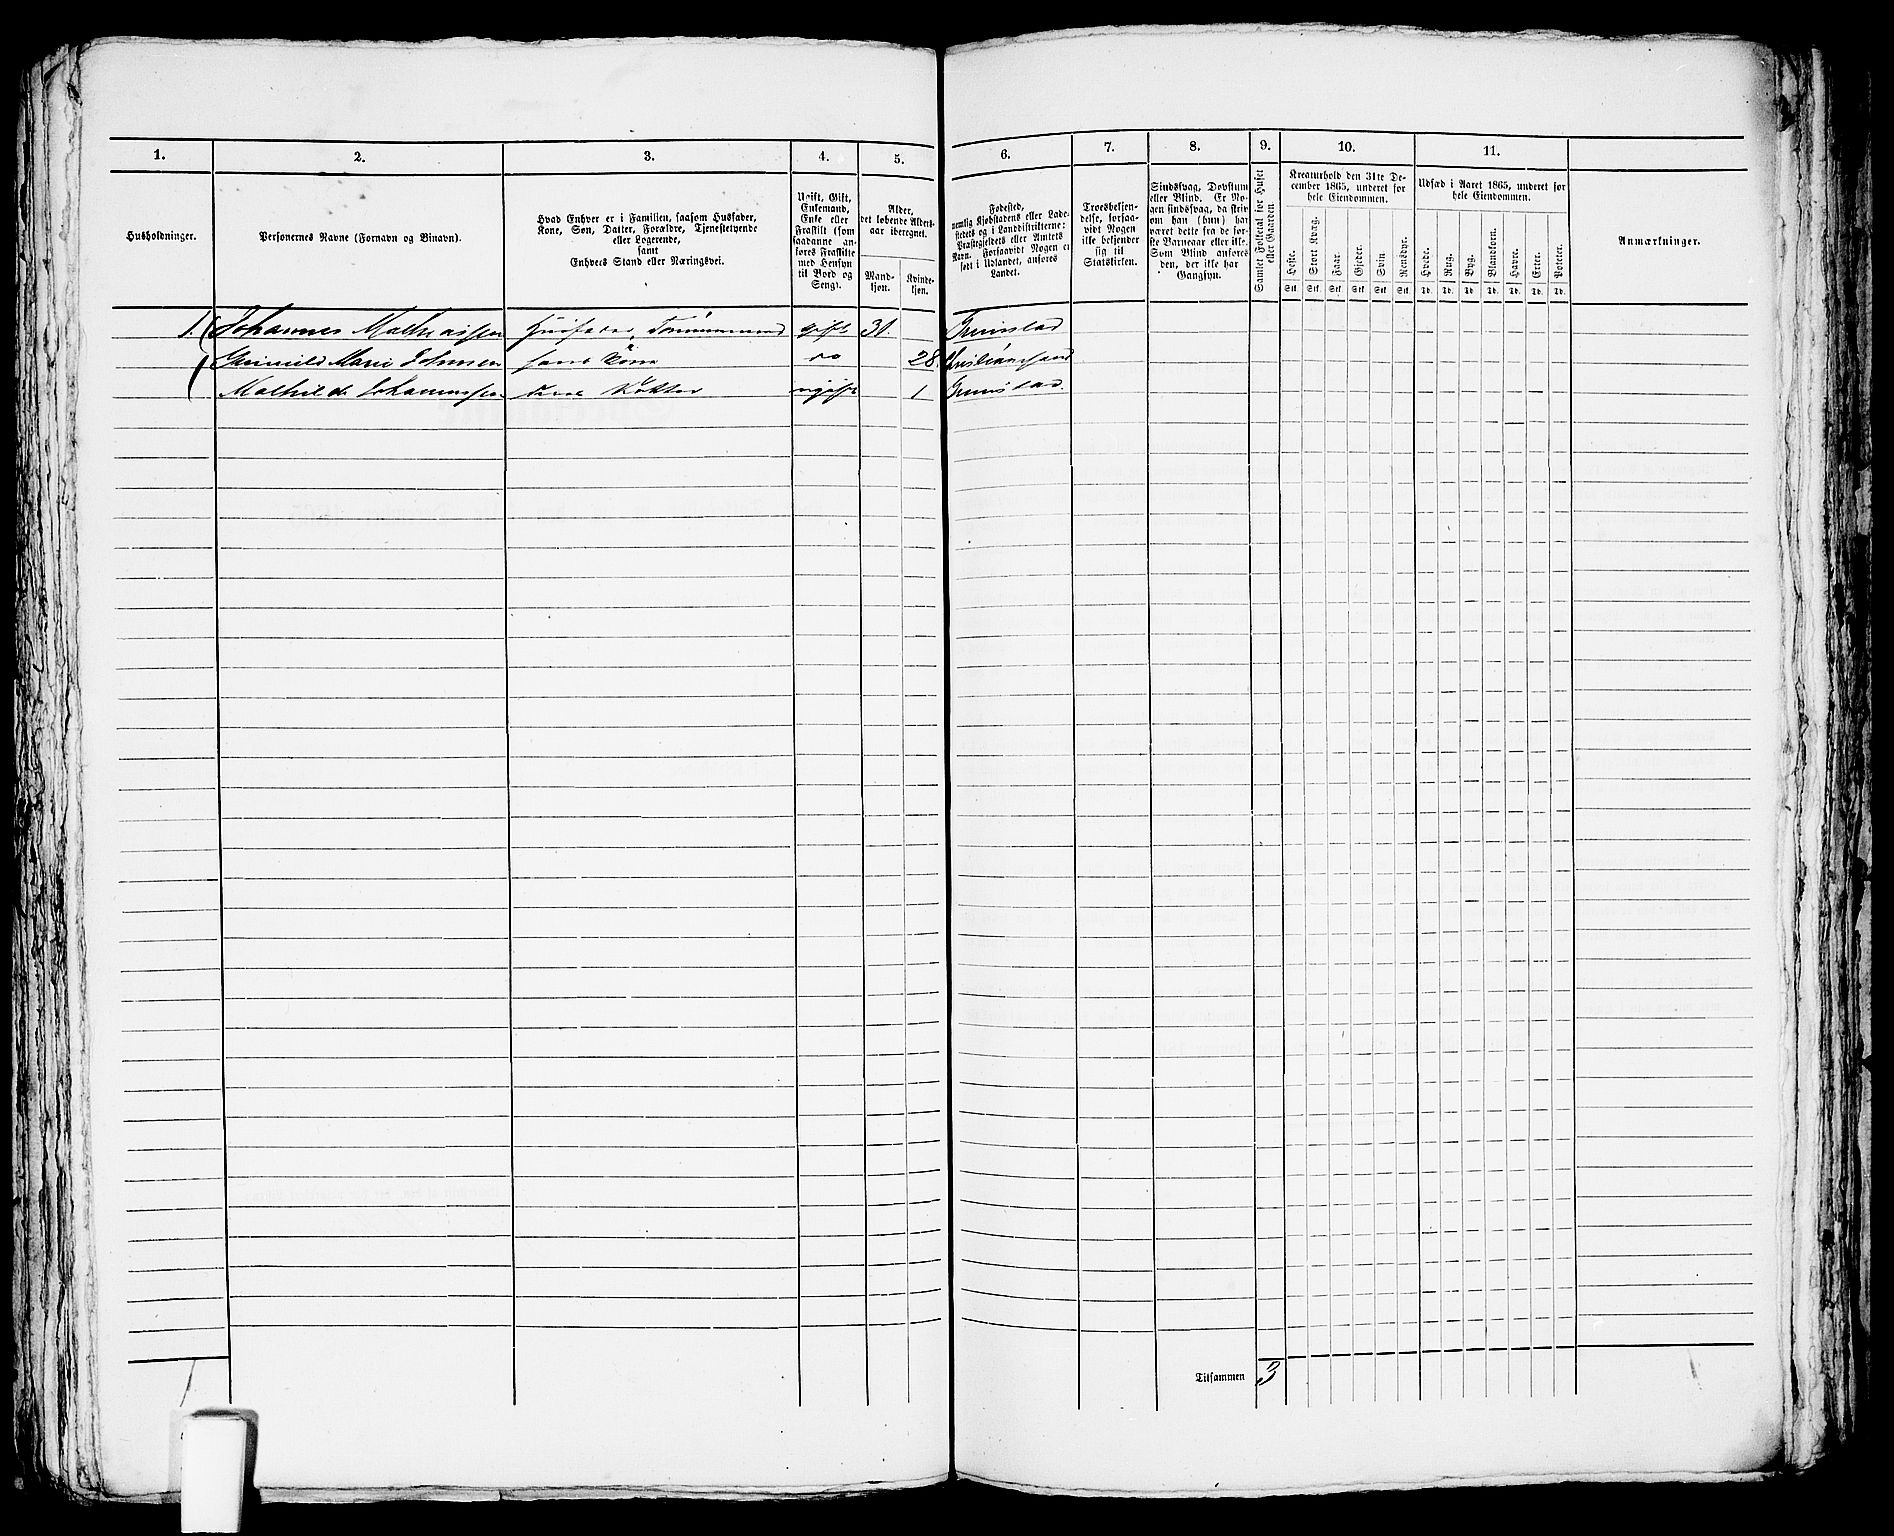 1.
2.
3.
4.
5.
6.
7.
8.
9.
10.
11.
Husholdninger.
Personernes Navne (Fornavn og Binavn).
Hvad Enhver er i Familien, saasom Husfader,
Kone, Søn, Datter, Forældre, Tjenestetyende
eller Logerende,
samt
Enhvers Stand eller Næringsvei.
Ugift, Gift,
Enkemand,
Enke eller
Fraskilt (som
saadanne an-
føres Fraskilte
med Hensyn
til Bord og
Seng).
Alder,
det løbende Alders-
aar iberegnet.
Mand-
kjøn.
Kvinde-
kjøn.
Fødested,
nemlig Kjøbstadens eller Lade-
stedets og i Landdistrikterne:
Præstegjeldets eller Amtets
Navn. Forsaavidt Nogen er
født i Udlandet, anføres
Landet.
Troesbekjen-
delse, forsaa-
vidt Nogen
ikke bekjender
sig til
Statskirken.
Sindssvag, Døvstum
eller Blind. Er No-
gen sindssvag, da skriv
om han (hun) har
været dette fra de før-
ste Barneaar eller ikke.
Som Blind anføres
den, der ikke har
Gangsyn.
Samlet Folketal for Huset
eller Gaarden.
Kreaturhold den 31te De-
cember 1865, underet for
hele Eiendommen.
Heste.
Stort Kvæg.
Faar.
Gjeder.
Svin.
Rensdyr.
Stk. Stk. Stk. Stk. Stk. Stk.
Udsæd i Aaret 1865, underet for
hele Eiendommen.
Hvede.
Rug.
Byg.
Blandkorn.
Havre.
Erter.
Poteter.
Td. Td. Td. Td. Td. Td. Td.
Anmærkninger.
1. Johannes Mathiassen Huusfader, Tømmermand gift 31. Grimstad
Gunnild Marie Johnsen hans Kone do 28 Christianssand
Mathilde Johannessen deres Datter ugift 1 Grimstad.
Tilsammen 3